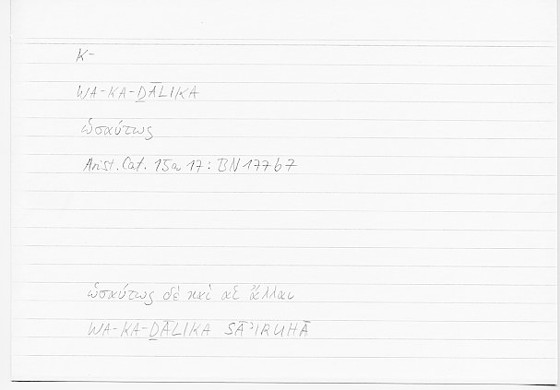 K-
WA-KA-ḎĀLIKA
ὡσαύτως
Arist. Cat. 15a 17 : BN 177b7
ὡσαύτως δὲ καὶ αἱ ἄλλαι
WA-KA-ḎĀLIKA SĀʾIRUHĀ